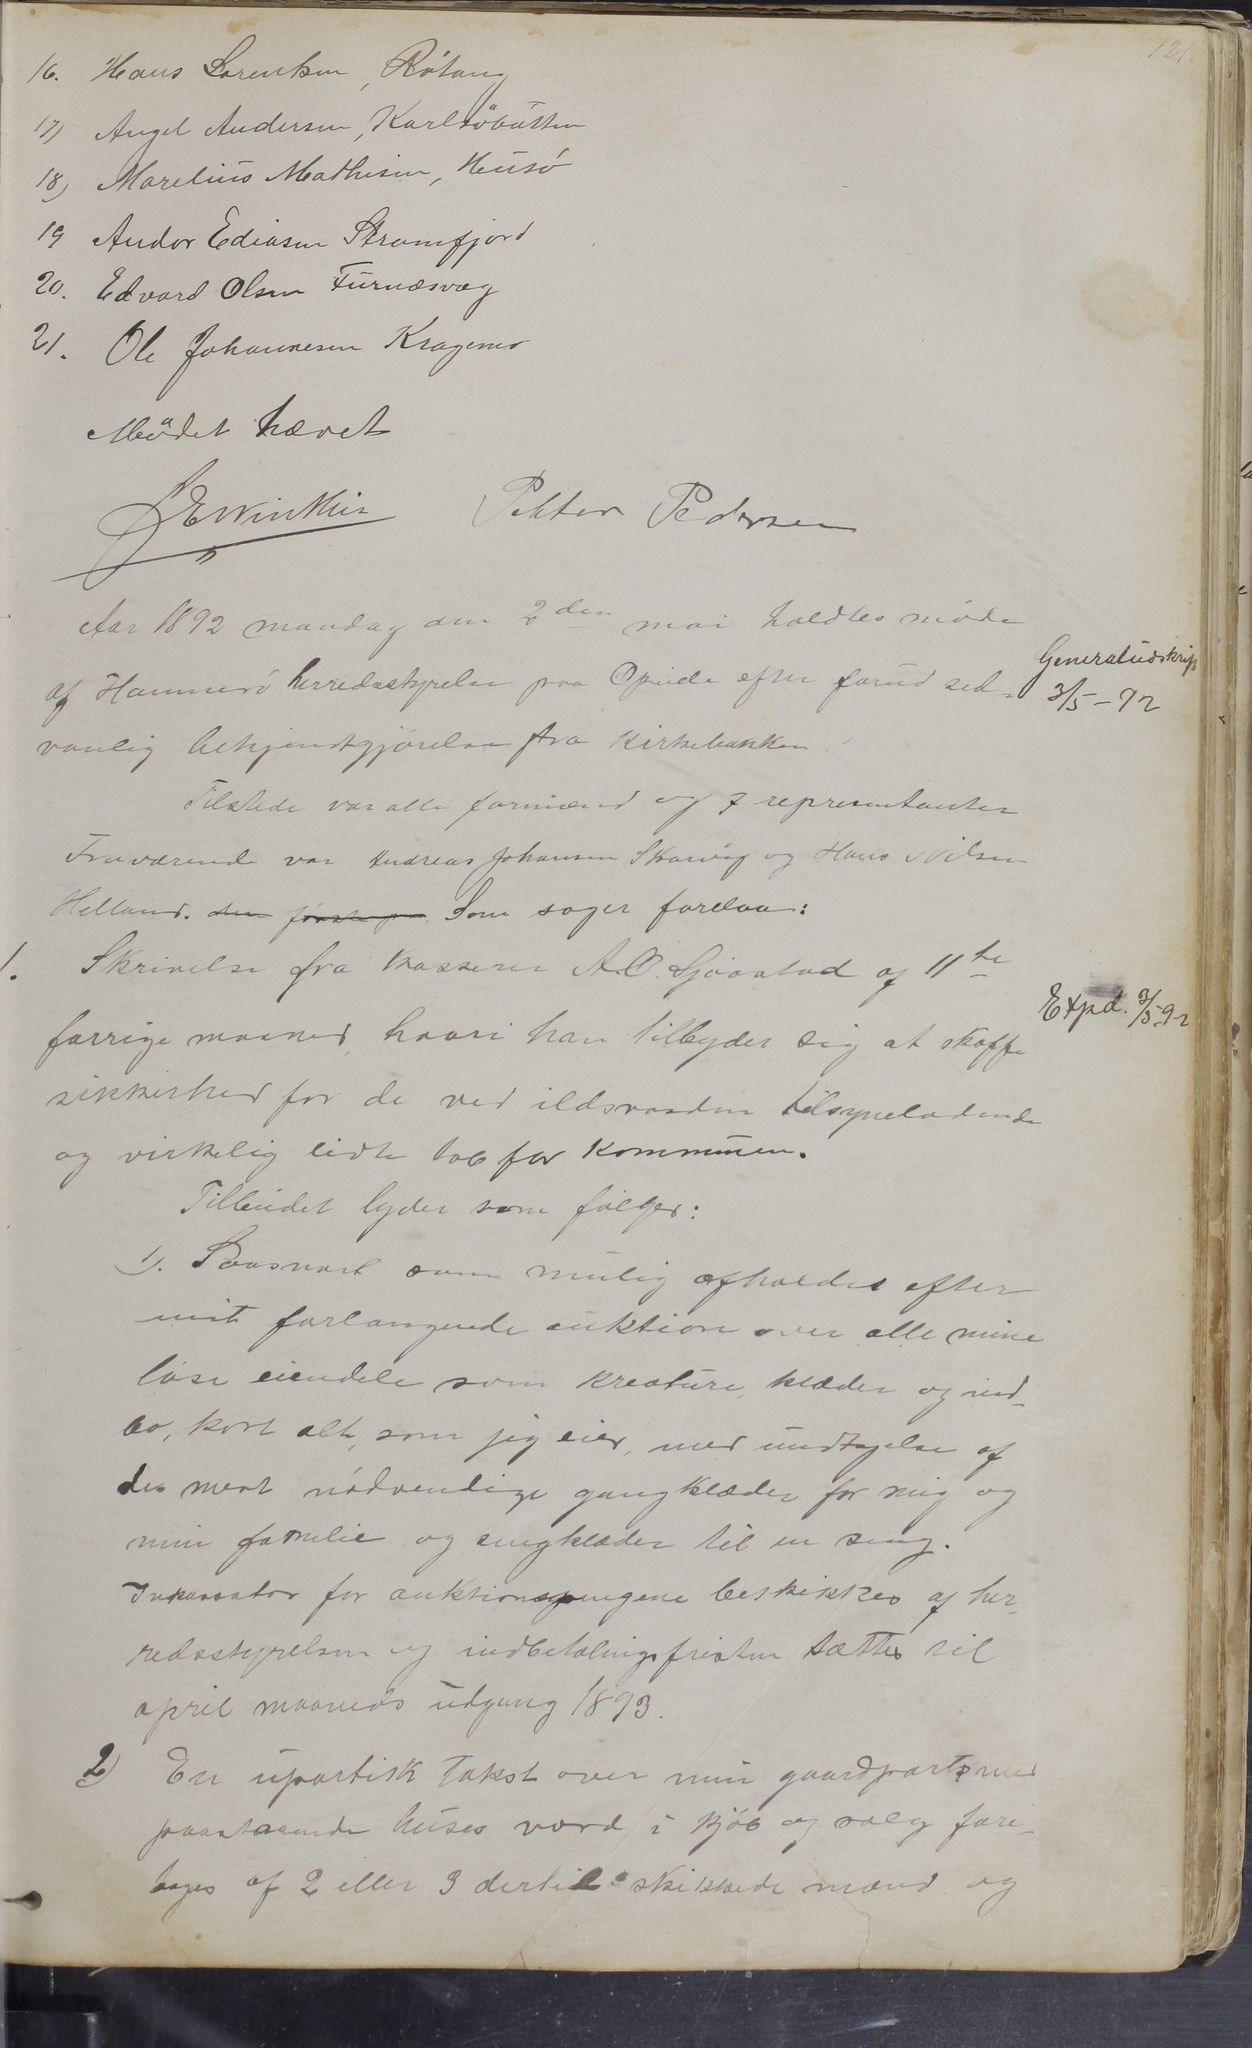 121.
16. Hans Lorentsen, Røtang
17) Angel Andersen, Karlsöbotten
18) Marelius Mathisen, Husö
19 Andor Ediasen Strømfjord
20. Edvard Olsen Furnæsvæg
21. Ole Johannesen Kragemo
Mödet hævet
Petter Pedersen
Aar 1892 mandag den 2den mai holdtes möde
af Hammerö herredsstyrelse paa Opeide efter forud sed-
vanlig bekjendtgjørelse fra kirkebakken.
Generaludskrift
3/5-92
Tilstede var alle formænd og 7 representanter
Fraværende var Andreas Johansen Skarvig og Hans Nilsen
Helland. den første Som sager forelaa:
1. Skrivelse fra kasserer A.O. Sjaastad af 11te
Expd. 3/5-92
forrige maaned, hvori han tilbyder sig at skaffe
sikkerhed for de ved ildsvaaden tilsyneladende
og virkelig lidte tab for kommunen.
Tilbudet lyder som følger:
1). Saasnart som mulig afholdes efter
mit forlangende auktion over alle mine
løse eiendele som kreature, klæder og ind-
bo, kort alt, som jeg eier, med undtagelse af
de mest nødvendige gangklæder for mig og
min familie og sengklæder til en seng.
Inkassator for auktionspengene beskikkes af her-
redsstyrelsen og indbetalingsfristen sættes til
april maaneds udgang 1893.
2) En upartisk takst over min gaardpart med
paastaaende huses værd i kjøb og salg fore-
tages af 2 eller 3 dertil skikkede mænd og